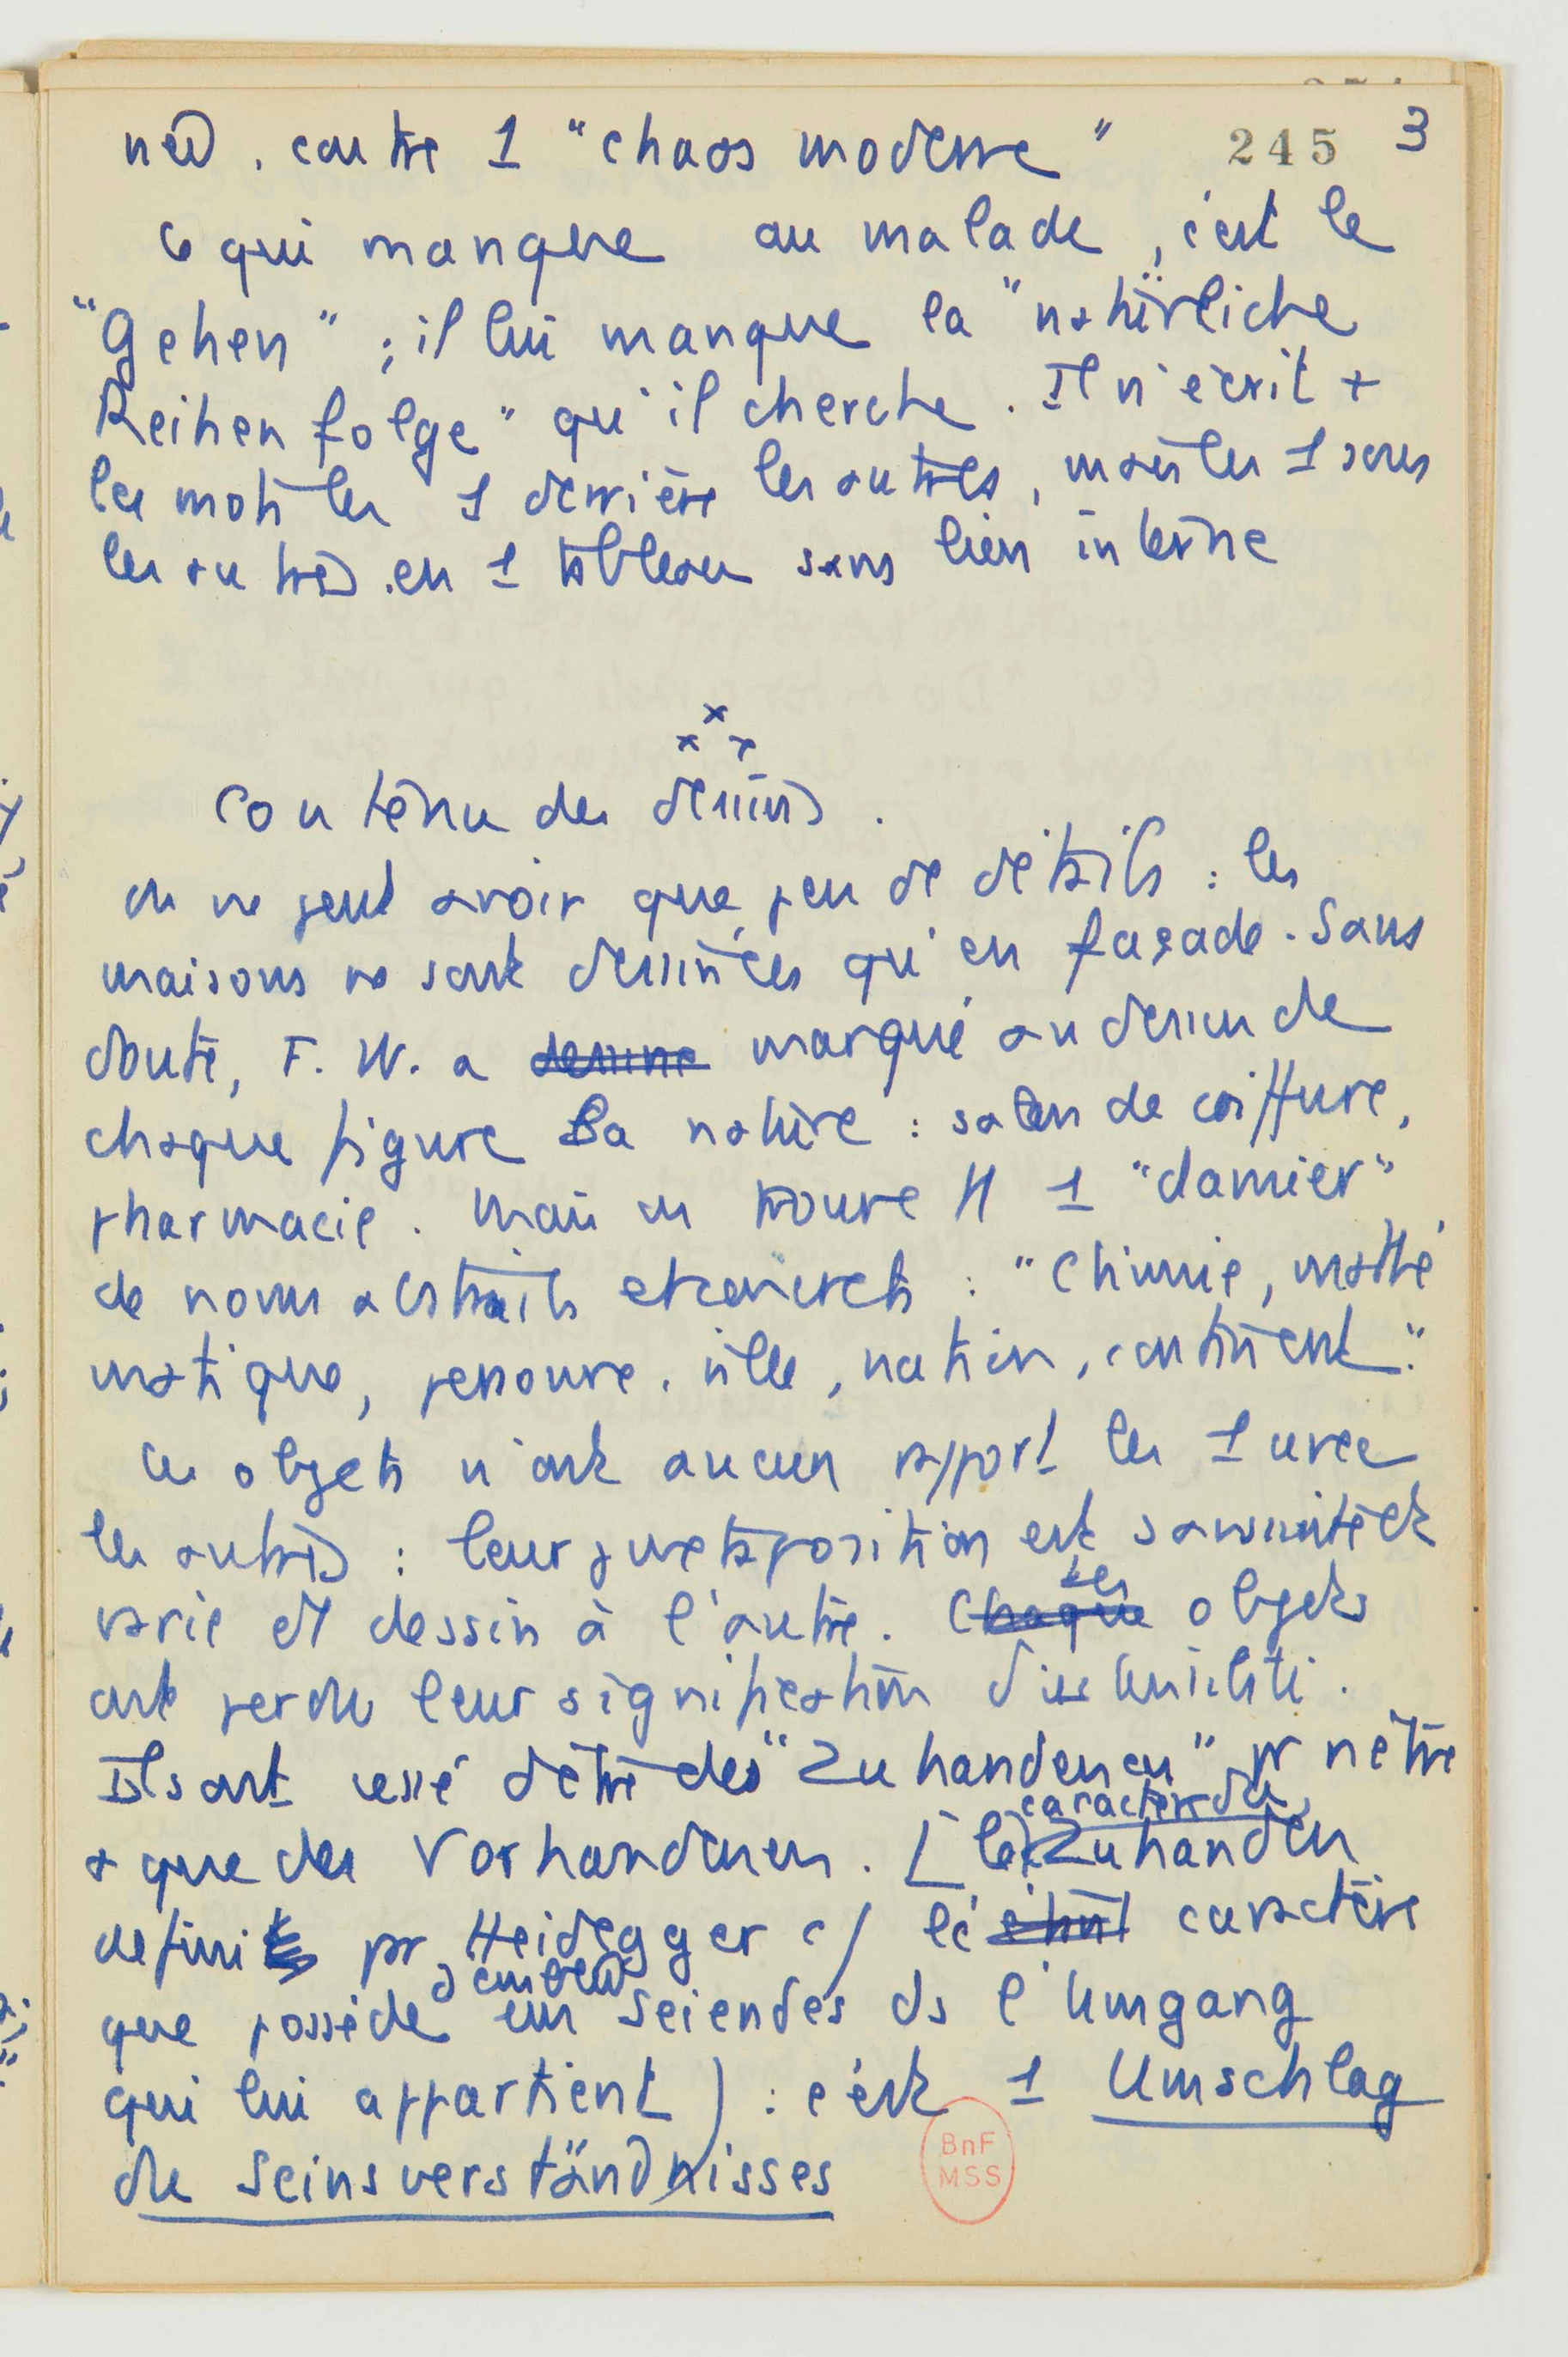 245 3
contre 1 "chaos moderne"
Ce qui manque au malade, c'est le
"Gehen" ; il lui manque la "natürliche
Reihenfolge" qu'il cherche. Il n'écrit +
les mots les 1 derrière les autres, mais les 1 sous
les autres en 1 tableau sans lien interne
x x x
Contenu des dessins.
On ne peut avoir que peu de détails : les
maisons ne sont dessinées qu'en façade. Sans
doute, F. W. a dessiné marqué au dessus de
chaque figure sa nature : salon de coiffure,
pharmacie. Mais on trouve 1 "damier"
de noms abstraits et concrets : "Chimie, mathé
matique, personne, ville, nation, continent."
Ces objets n'ont aucun rapport les 1 avec
les autres : leur juxtaposition est sans unité et
varie d'1 dessin à l'autre. Chaque Les objets
ont perdu leur signification d'ustensilité.
Ils ont cessé d'être des "Zuhandenen" pr n'être
+ que des Vorhandenen. [le caractère du Zuhanden
défini pr Heidegger c/ le caractère
que possède d'emblée un Seiendes ds l'Umgang
qui lui appartient) : c'est 1 Umschlag
de Seinsverständnisses
BnF
MSS